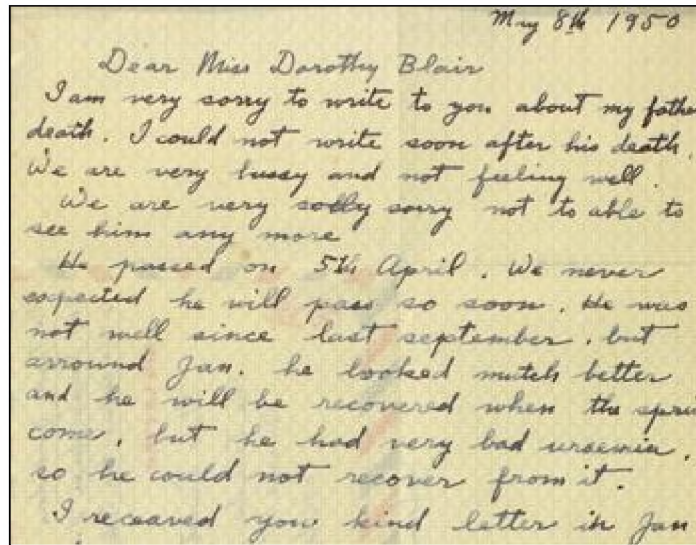 May 8th 1950
Dear Miss Dorothy Blair
I am very sorry to write to you about my fathe
death. I could not write soon after his death.
We are very bussy and not feeling well.
We are very solly sorry not to able to
see him any more
He passed on 5th April. We never
expected he will pass so soon. He was
not well since last september. but
arround Jan. he looked mutch better
and he will be recovered when the sprin
come, but he had very bad uraemia.
so he could not recover from it.
I receaved you kind letter in Jan